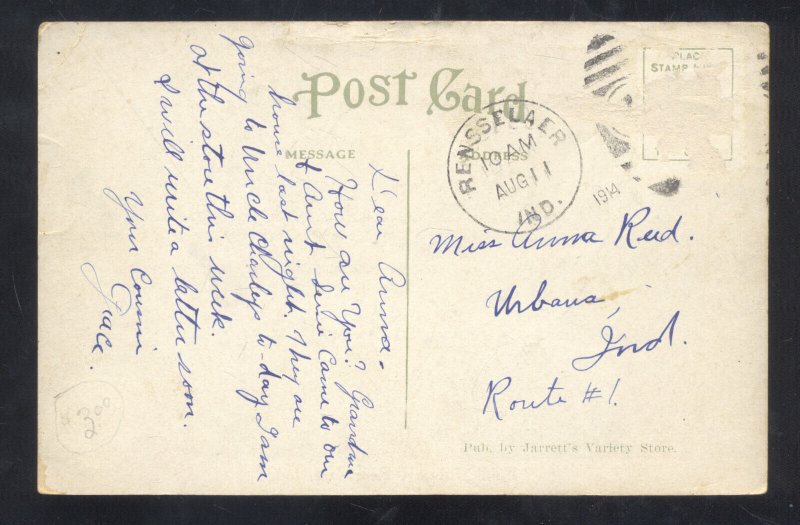 POST CARD
MESSAGE
ADDRESS
PLACE
STAMP
RENSSELAER
10 AM
AUG 11
1914
IND.
Dear Anna-
How are You? Grandma
& Aunt came to our
house last night. They are
going to Uncle Charleys to-day I am
at the store this week.
I will write a letter soon.
Your Cousin
Grace.
Miss Anna Reed.
Urbana,
Ind.
Route #1.
Pub. by Jarrett's Variety Store.